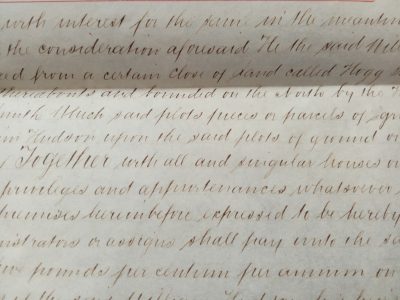 with interest for the same in the meantim
the consideration aforesaid He the said
ed from a certain close of land called Hogg
thereabouts and bounded on the North by the
Which said plots pieces or parcels of
Hudson upon the said plots of ground
Together with all and singular houses
privileges and appurtenances whatsoever
hereinbefore expressed to be hereby
nistrators or assigns shall pay unto the
pounds per centum per annum on
the said